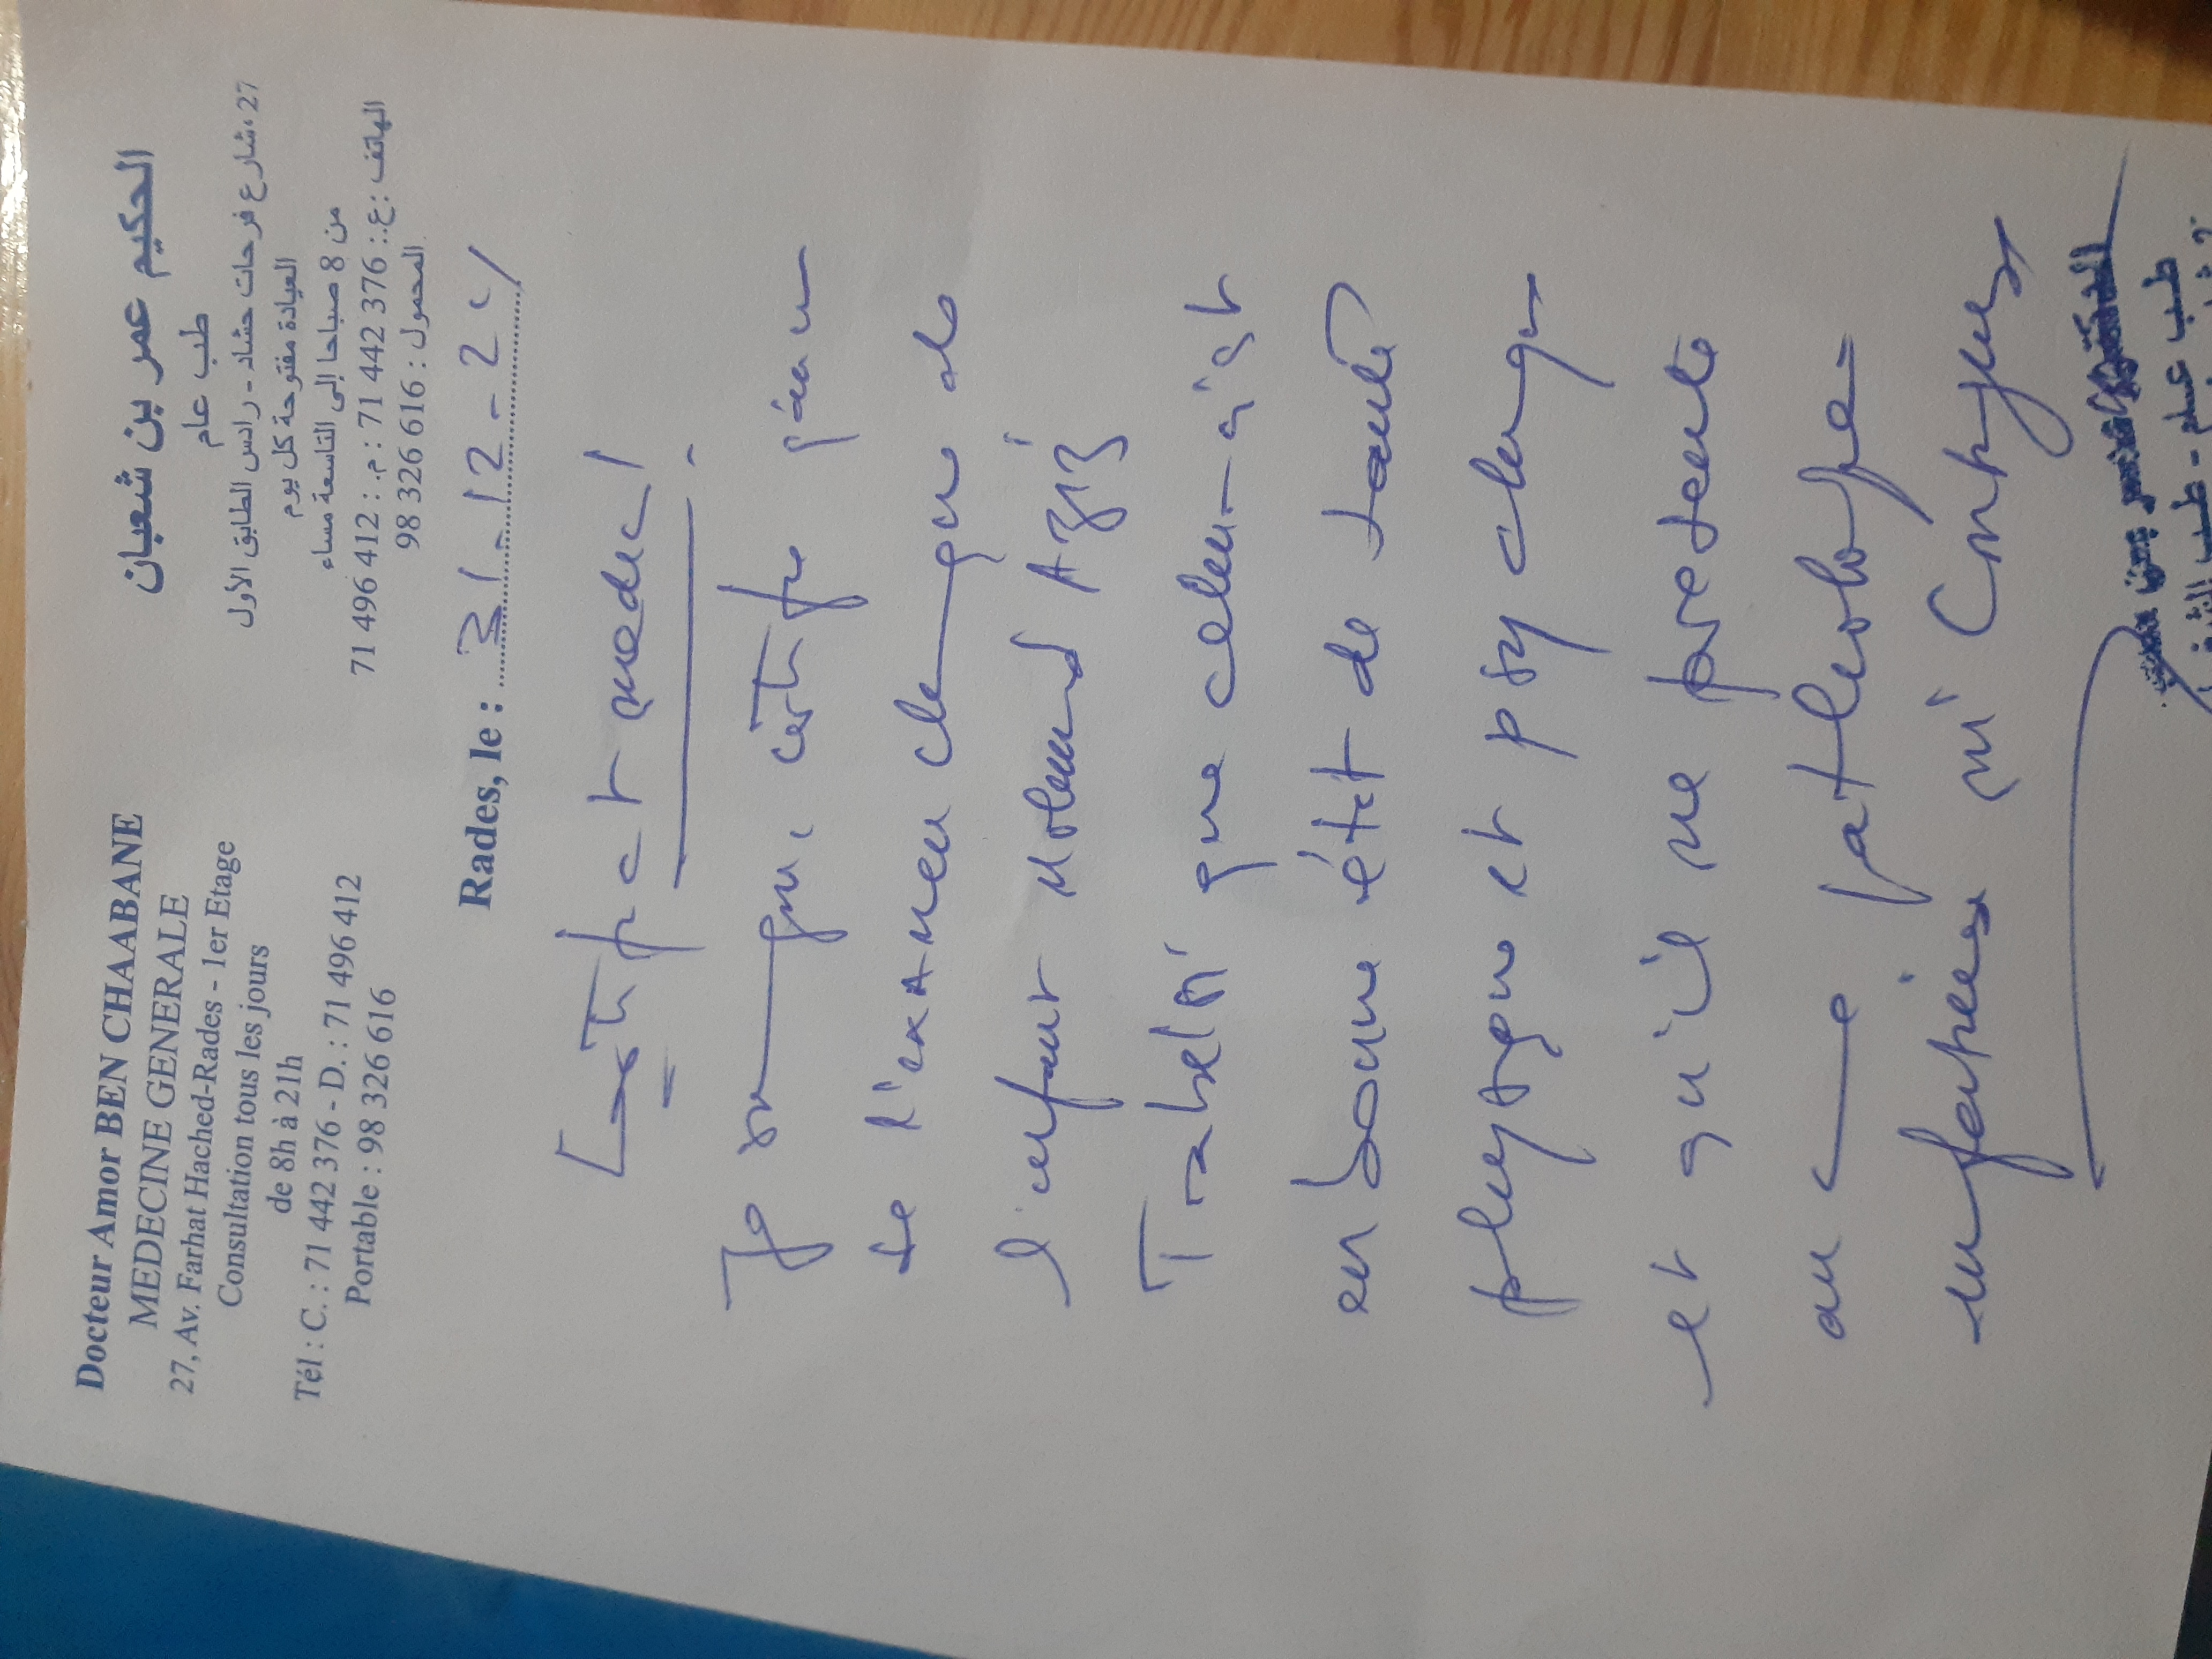 Docteur Amor BEN CHAABANE
MEDECINE GENERALE
27, Av. Farhat Hached-Rades - 1er Etage
Consultation tous les jours
de 8h à 21h
Tél : C. : 71 442 376 - D. : 71 496 412
Portable : 98 326 616
الحكيم عمر بن شعبان
طب عام
27، شارع فرحات حشاد - رادس الطابق الأول
العيادة مفتوحة كل يوم
من 8 صباحا إلى التاسعة مساء
الهاتف : ع. : 376 442 71 م. : 412 496 71
المحمول : 616 326 98
Rades, le : 31-12-24
Certificat medical
Je soussigné certifie
de l'examen clinique de
l'enfant Mohamed Aziz
Trabelsi que celui-ci est
en bonne état de santé
physique et psychique
et qu'il ne présente
aucune pathologie
infectieuse ni contagieuse
طب عام - طب